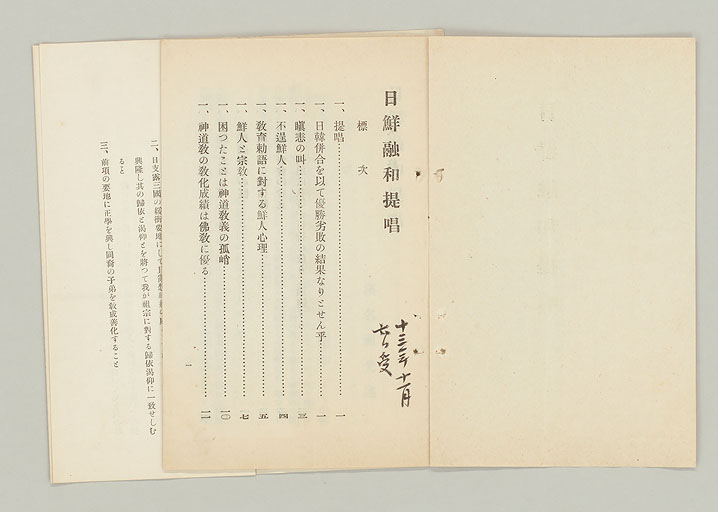 日鮮融和提唱
標次
一、提唱………一
一、日韓併合を以て優勝劣敗の結果なりとせん乎………一
一、瞋恚の叫………三
一、不逞鮮人………四
一、敎育勅語に對する鮮人心理………五
一、鮮人と宗敎………七
一、困つたことは神道敎義の孤峭………一〇
一、神道敎の敎化成績は佛敎に優る………一一
一
十三年十一月
受
二、日支露三國の緩衝要地にして
興隆し其の歸依と渴仰とを將つて我が祖宗に對する歸依渴仰に一致せしむ
ること
三、前項の要地に正學を興し同裔の子弟を敎成善化すること